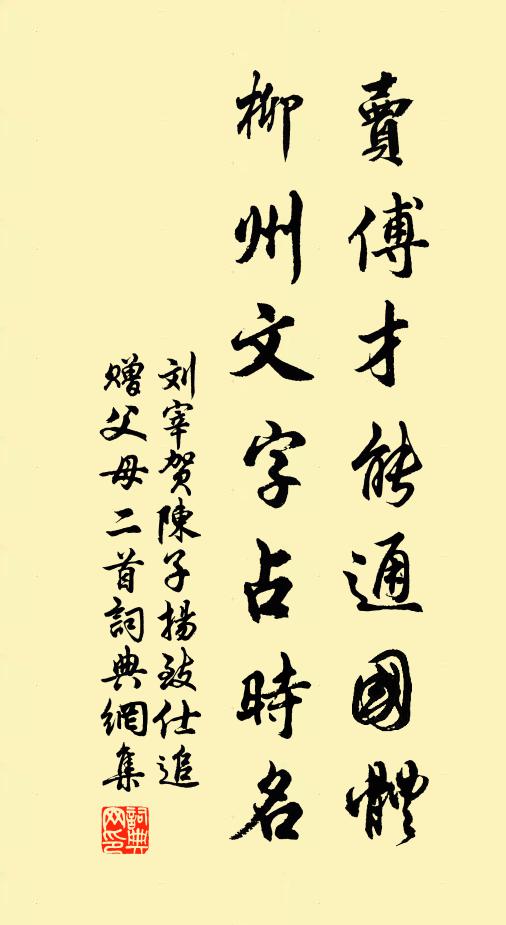 賣傅才能通國體
柳州文字占時名
刘宰贺陳子揚致仕追
贈父母二首詞典網集
詞典网印